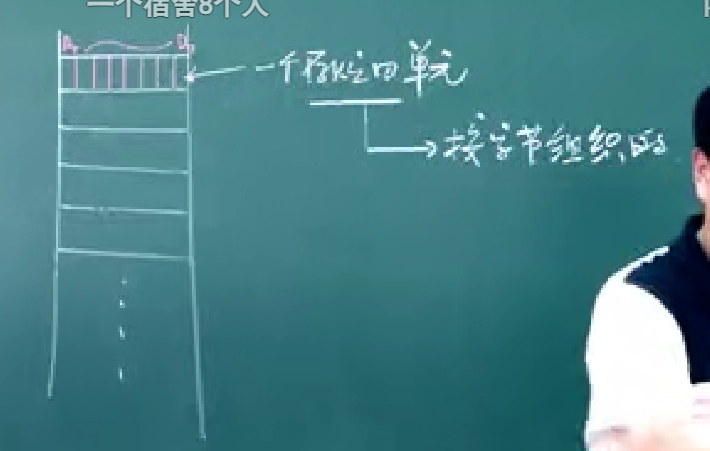 一个宿舍8个人
D₇ D₀
一个存储单元
按字节组织的